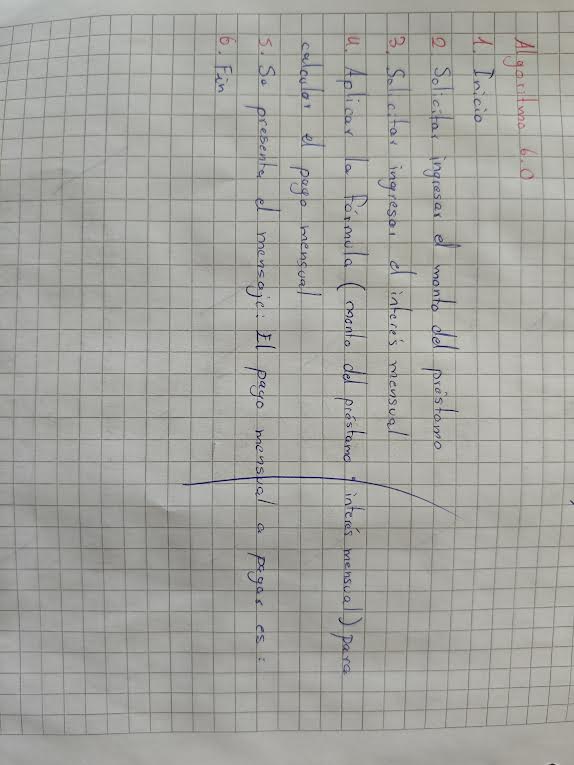 Algoritmo 6.0
1. Inicio
2. Solicitar ingresar el monto del préstamo
3. Solicitar ingresar el interés mensual
4. Aplicar la fórmula (monto del préstamo * interés mensual) para
calcular el pago mensual
5. Se presenta el mensaje: El pago mensual a pagar es:
6. Fin